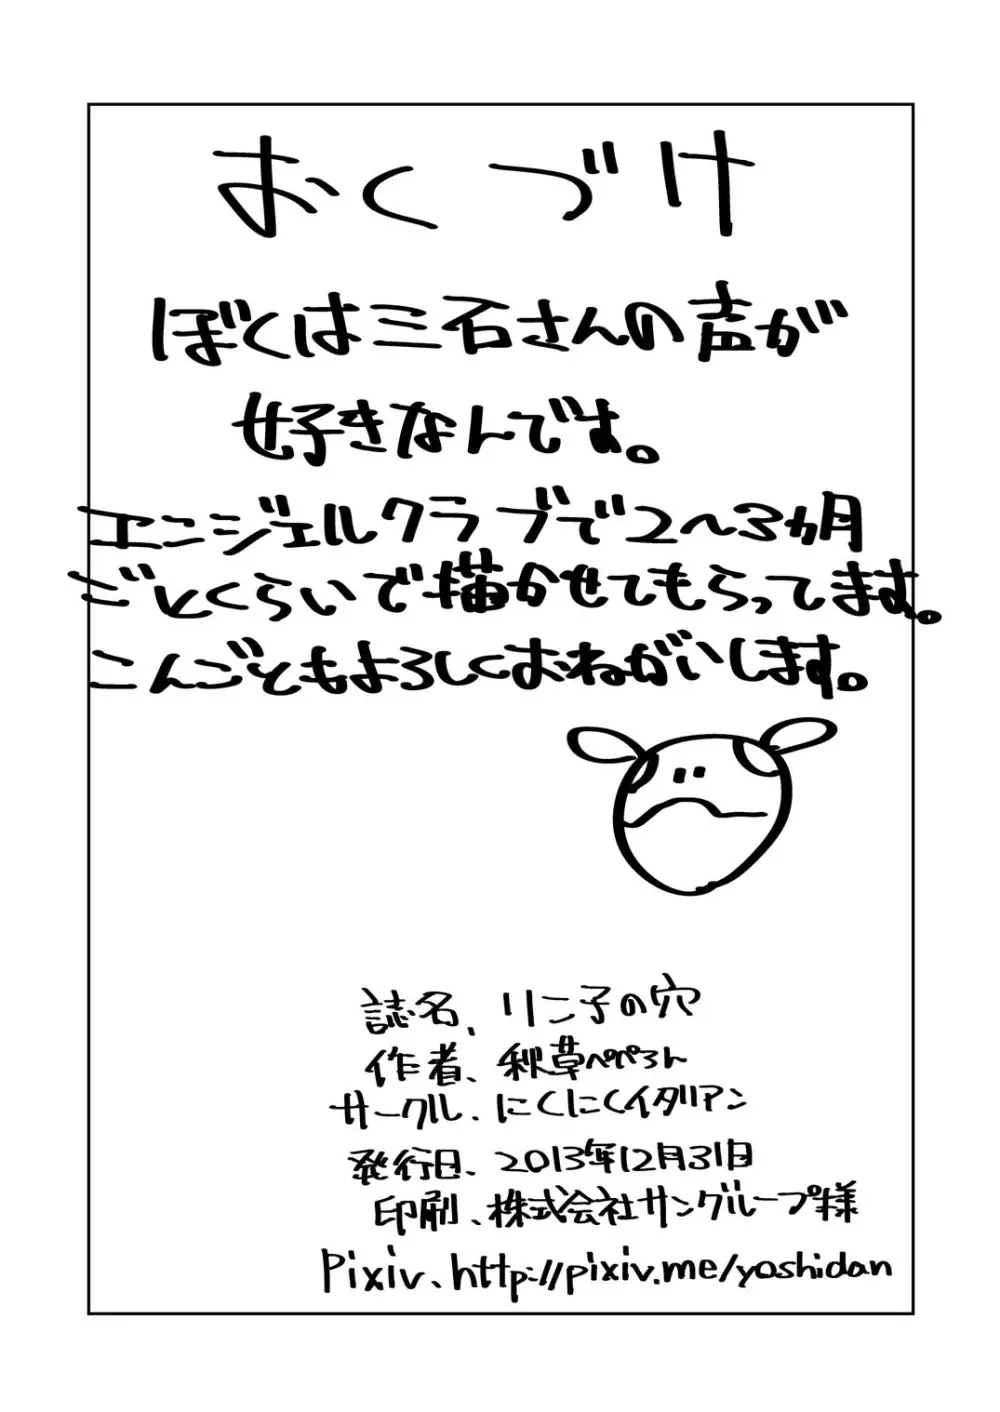 おくづけ
ぼくは三石さんの声が
好きなんです。
エンジェルクラブで2～3ヵ月
ごとくらいで描かせてもらってます。
こんごともよろしくおねがいします。
誌名、リニ子の穴
作者、秋草ぺぺろん
サークル、にくにくイタリアン
発行日、2013年12月31日
印刷、株式会社サングループ様
Pixiv、http://pixiv.me/yoshidan